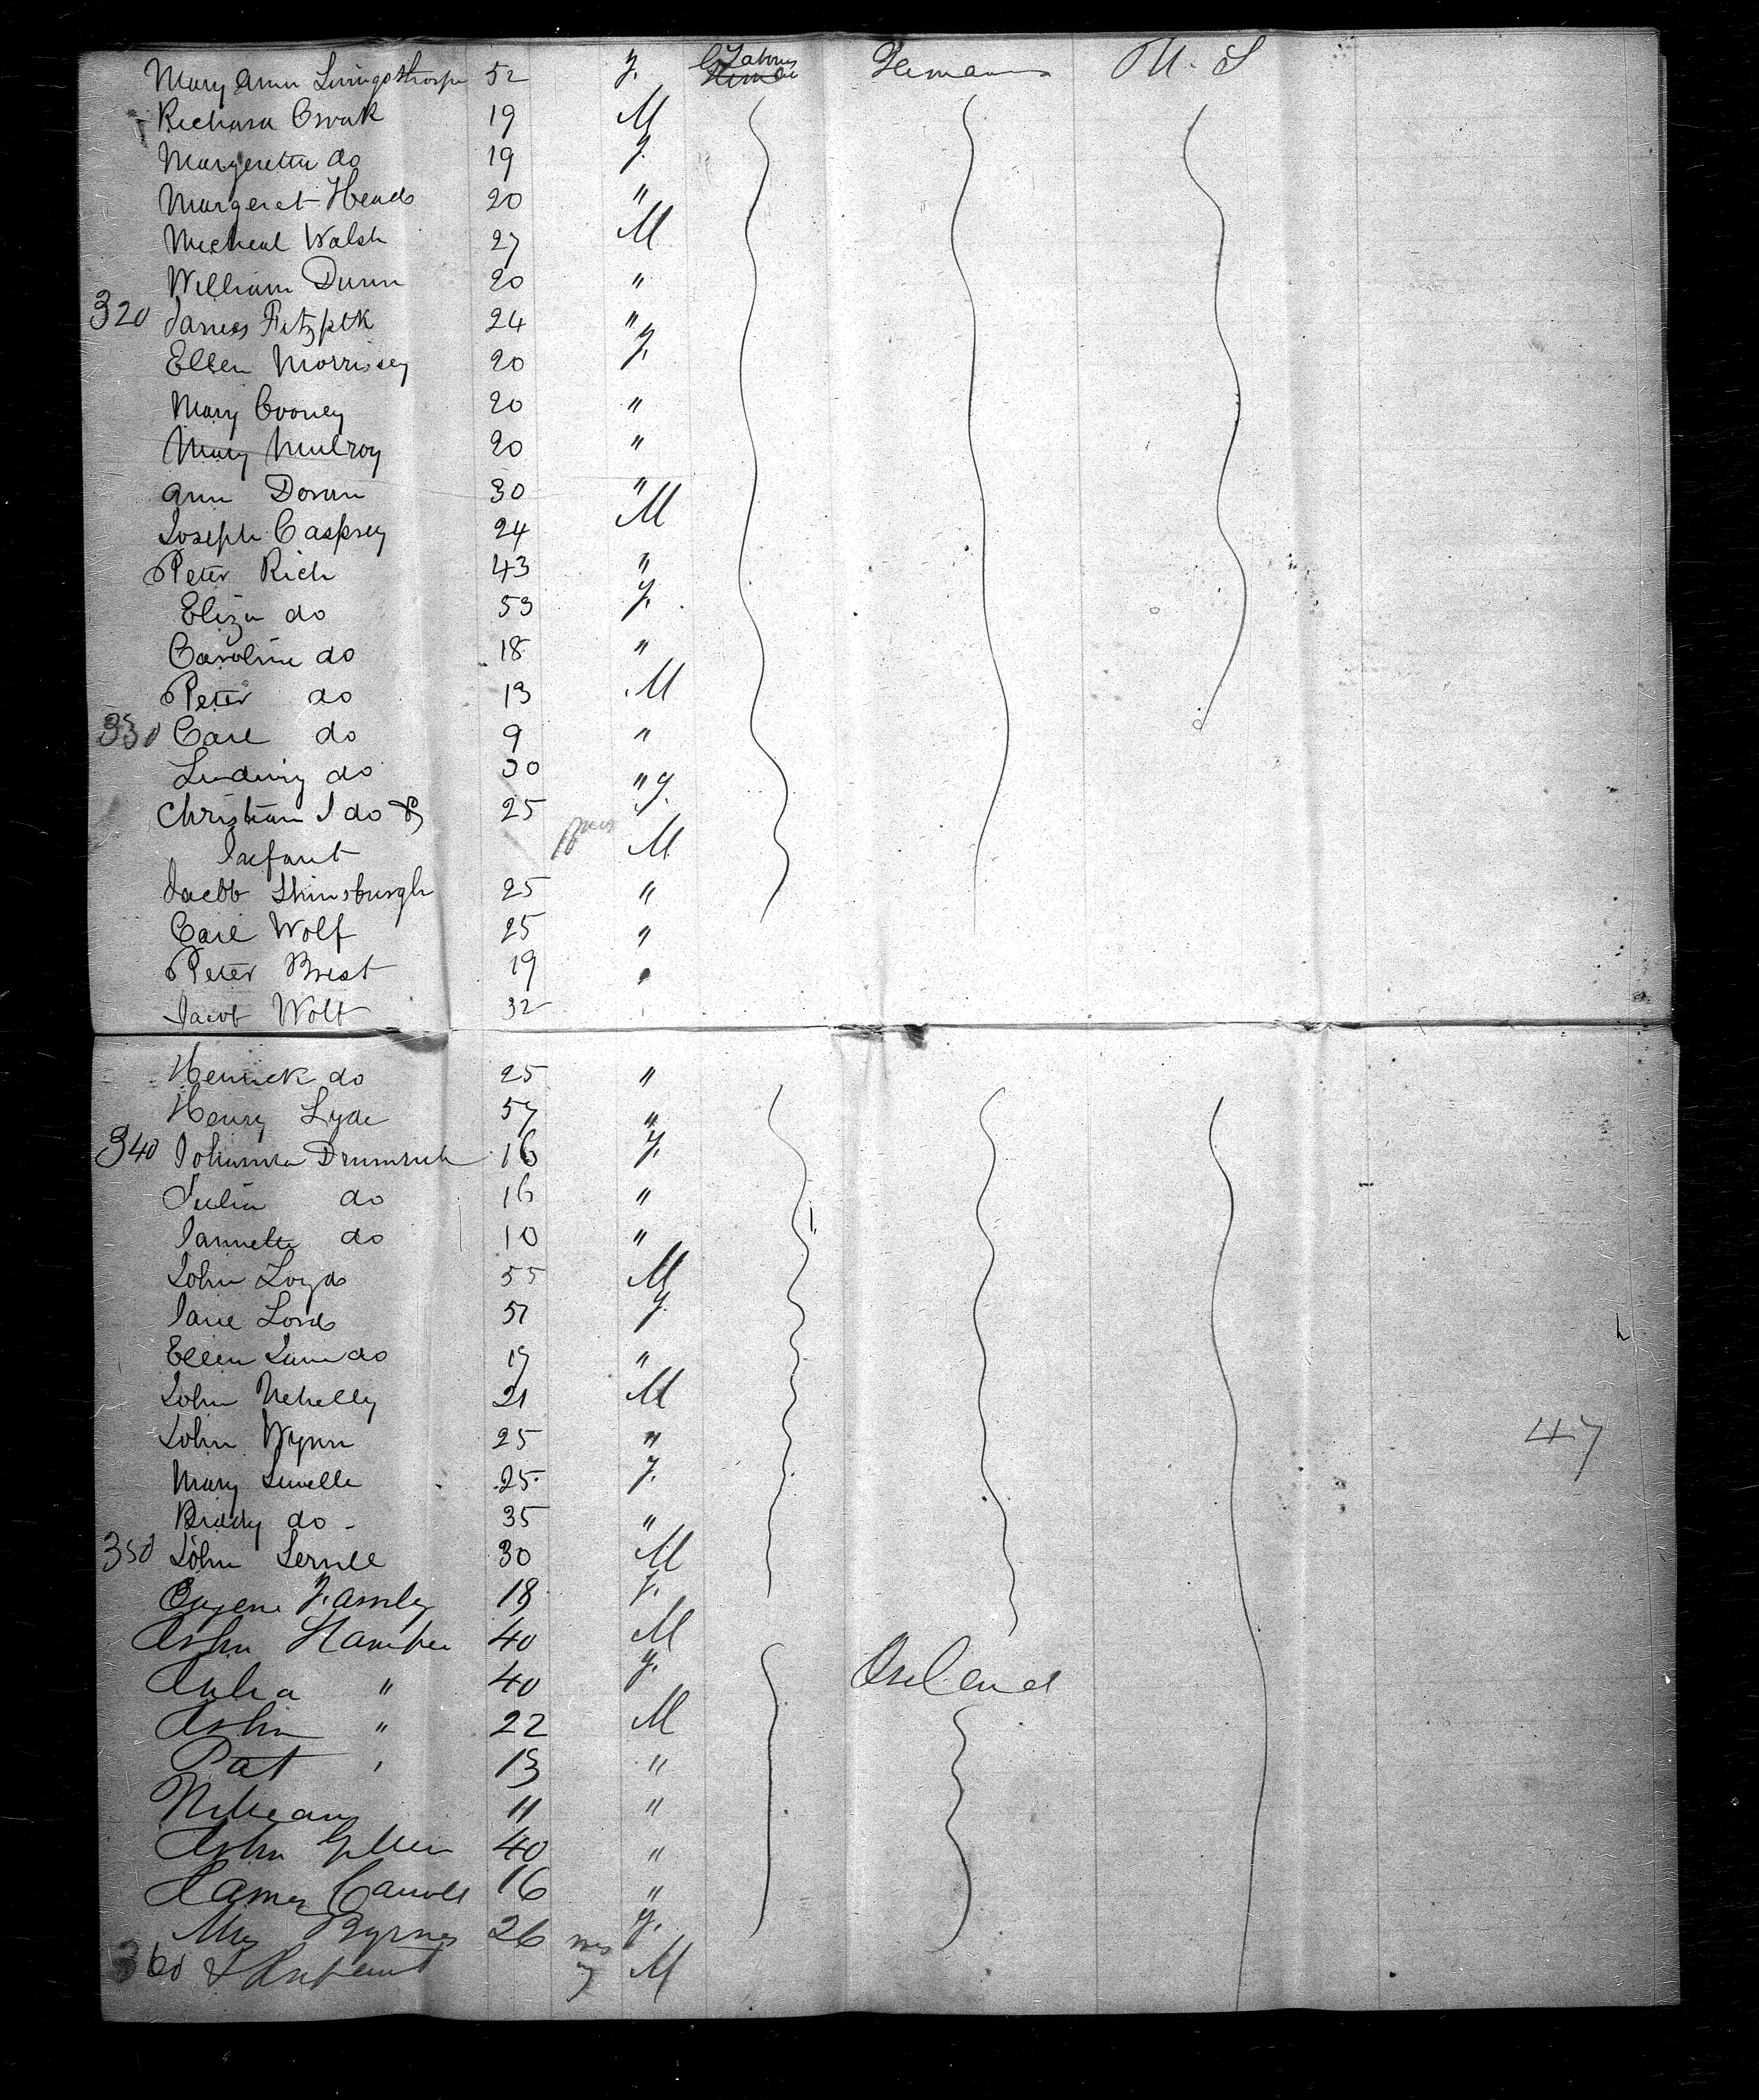 Mary Ann Livingsthorpe 52 F. Labours German U. S
Richard Cwak 19 M
Margeretta do 19 F.
Margeret Heads 20 "
Micheal Walsh 27 M
William Dunn 20 "
320 James Fitzptk 24 "
Ellen Morrisey 20 F.
Mary Cooney 20 "
Mary Mulroy 20 "
Ann Doran 30 "
Joseph Casprey 24 M
Peter Rich 43 "
Eliza do 53 F.
Caroline do 18 "
Peter do 13 M
330 Carl do 9 "
Ludwig do 30 "
Christian J do & 25 F.
Infant M
Jacob Shinsburgh 25 "
Carl Wolf 25 "
Peter Brest 19 "
Jacob Wolf 32
Henrick do 25 "
Henry Lyde 57 "
340 Johanna Drumrich 16 F.
Julia do 16 "
Jannette do 10 "
John Loyds 55 M
Jane Lords 51 F
Ellen Jane do 19 "
John Nehelly 21 M
John Wynn 25 "
Mary Levelle 25 F.
Biddy do - 35 "
350 John Lernel 30 M
Eugene Farnley 18 F.
John Hamber 40 M
Julia " 40 F.
John " 22 M
Pat " 13 "
William 11 "
John Gillen 40 "
James Carroll 16 "
Mrs Byrnes 26 F.
360 & Infant M
Ireland
47